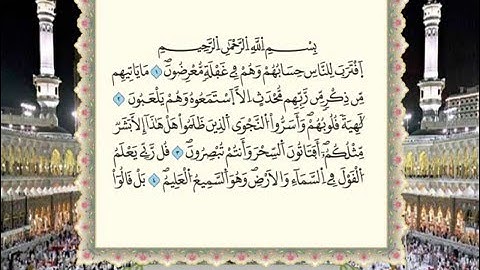 بِسْمِ اللَّهِ الرَّحْمَٰنِ الرَّحِيمِ
اقْتَرَبَ لِلنَّاسِ حِسَابُهُمْ وَهُمْ فِي غَفْلَةٍ مُّعْرِضُونَ ۝١ مَا يَأْتِيهِم
مِّن ذِكْرٍ مِّن رَّبِّهِم مُّحْدَثٍ إِلَّا اسْتَمَعُوهُ وَهُمْ يَلْعَبُونَ ۝٢
لَاهِيَةً قُلُوبُهُمْ ۗ وَأَسَرُّوا النَّجْوَى الَّذِينَ ظَلَمُوا هَلْ هَٰذَا إِلَّا بَشَرٌ
مِّثْلُكُمْ ۖ أَفَتَأْتُونَ السِّحْرَ وَأَنتُمْ تُبْصِرُونَ ۝٣ قَالَ رَبِّي يَعْلَمُ
الْقَوْلَ فِي السَّمَاءِ وَالْأَرْضِ ۖ وَهُوَ السَّمِيعُ الْعَلِيمُ ۝٤ بَلْ قَالُوا